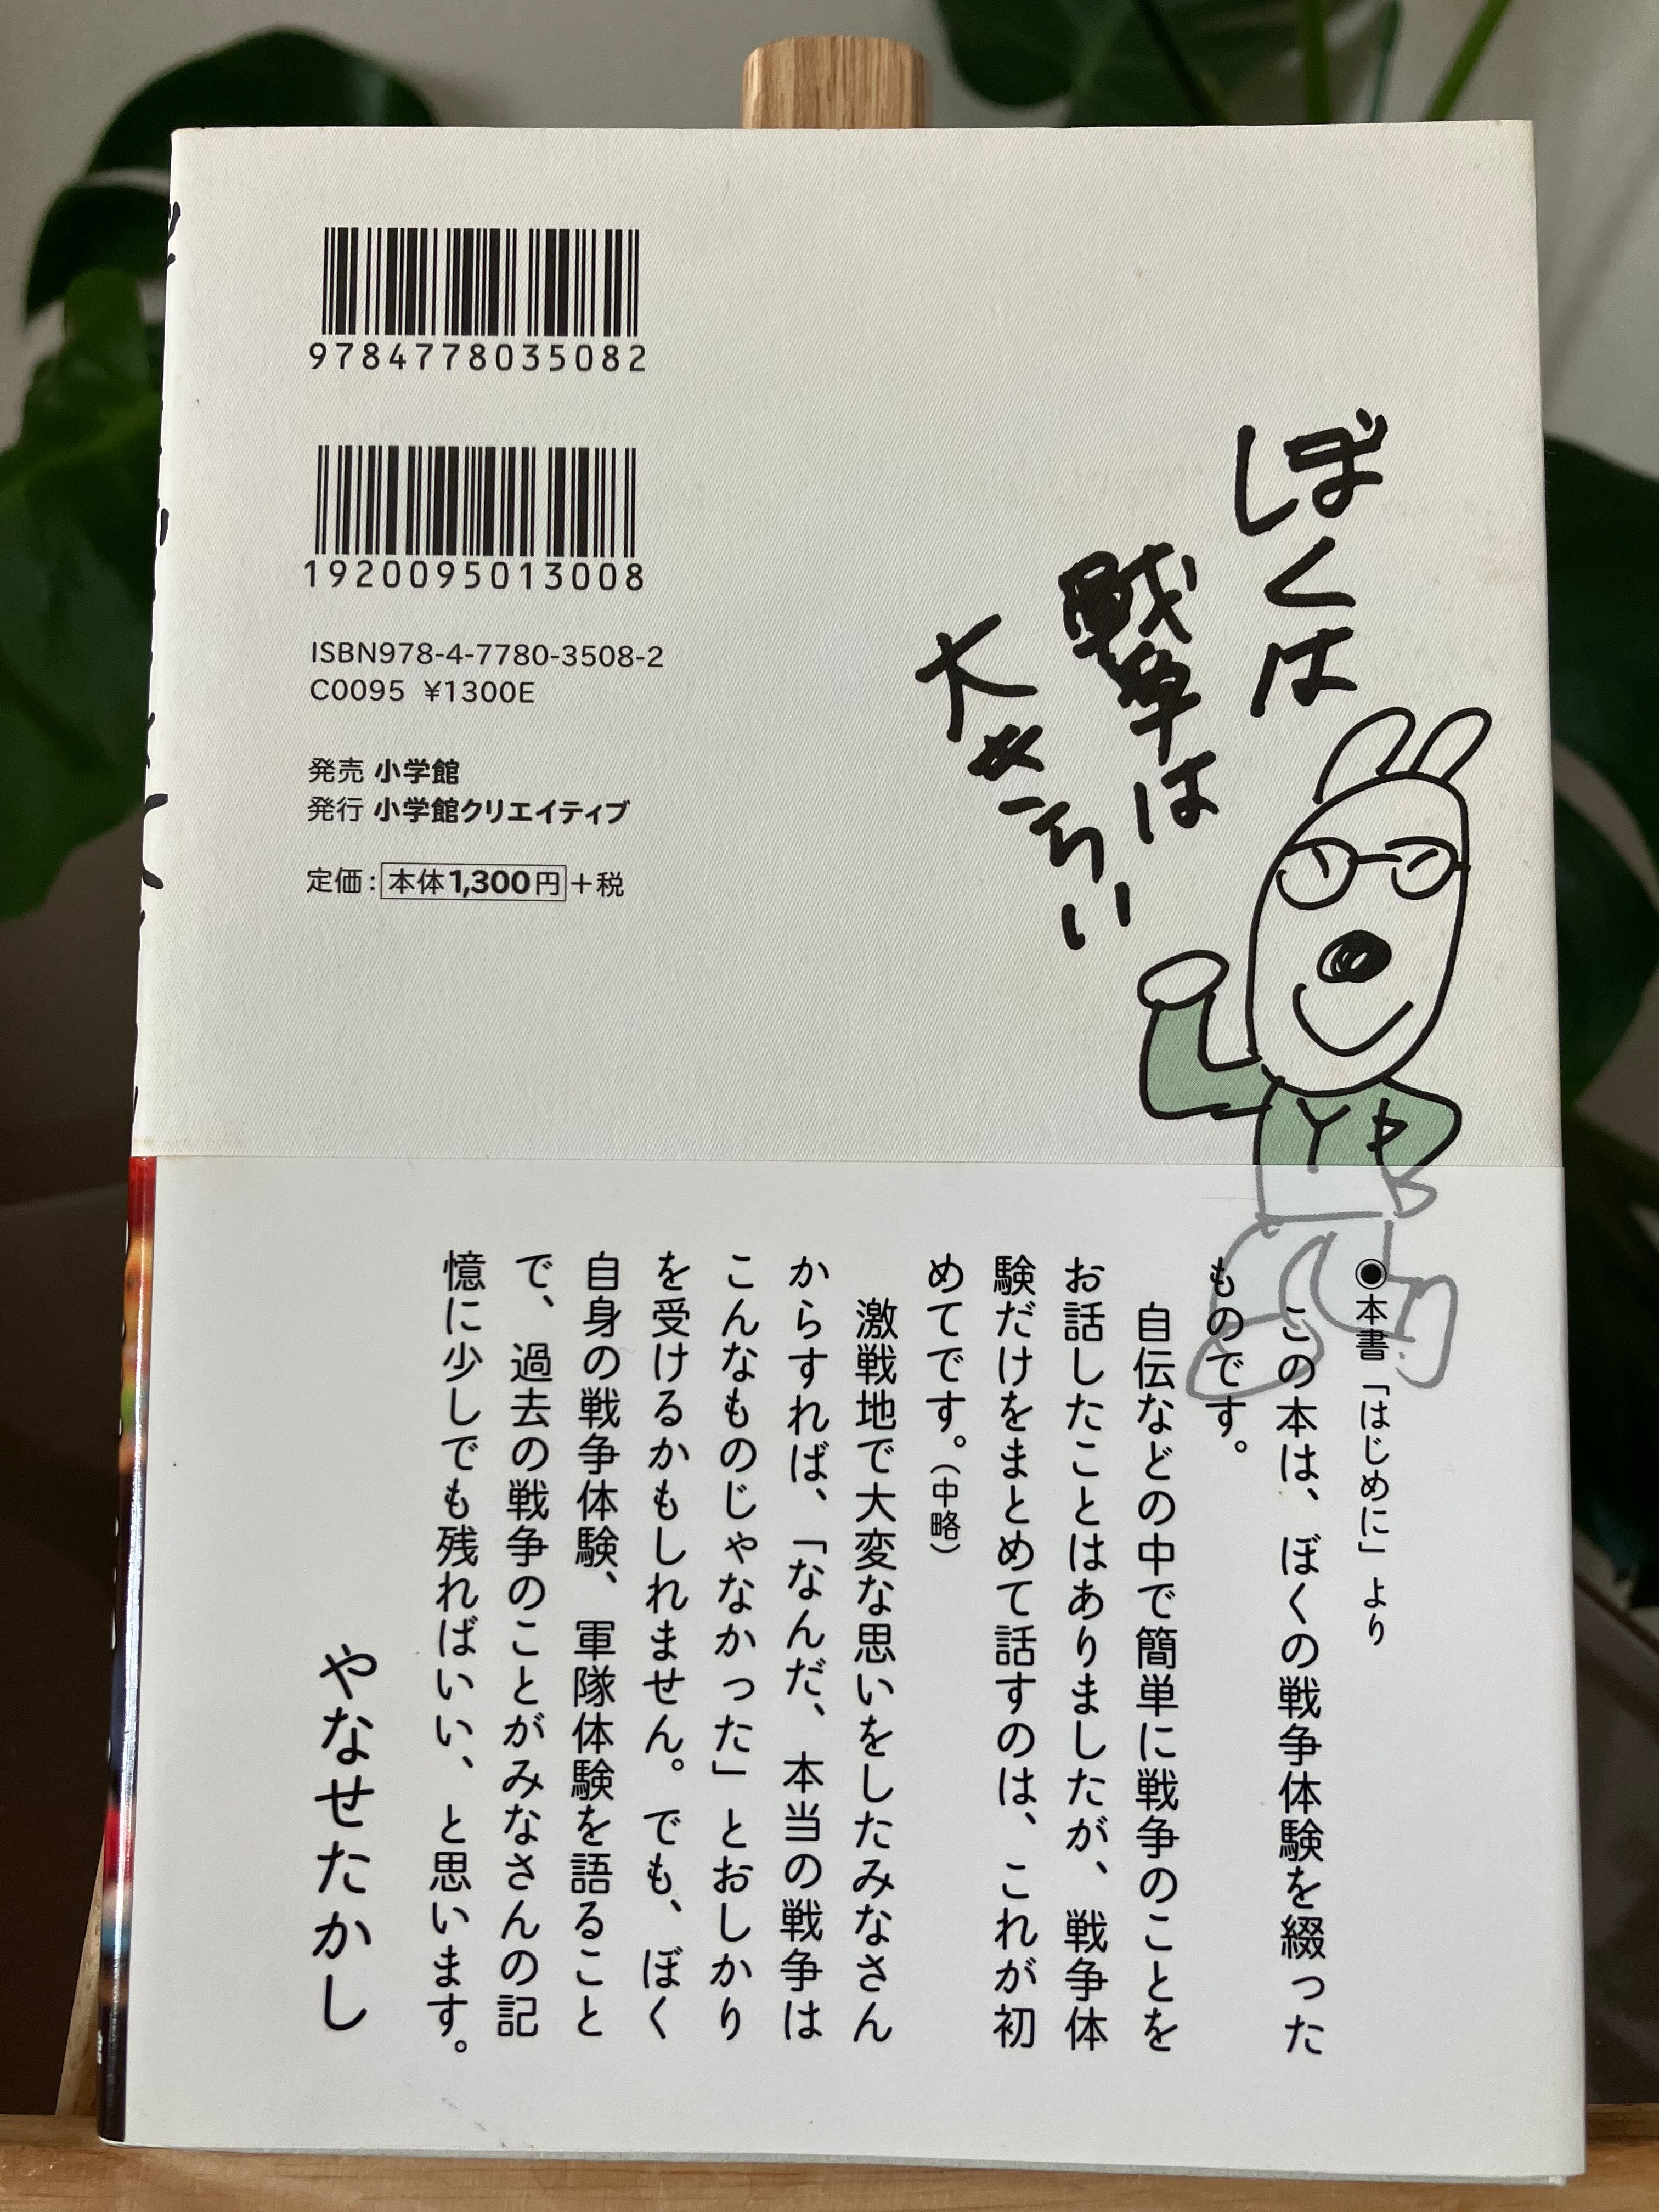 9784778035082
1920095013008
ISBN978-4-7780-3508-2
C0095 ¥1300E
発売 小学館
発行 小学館クリエイティブ
定価：本体1,300円＋税
ぼくは
戦争は
大きらい
●本書「はじめに」より
この本は、ぼくの戦争体験を綴った
ものです。
自伝などの中で簡単に戦争のことを
お話したことはありましたが、戦争体
験だけをまとめて話すのは、これが初
めてです。（中略）
激戦地で大変な思いをしたみなさん
からすれば、「なんだ、本当の戦争は
こんなものじゃなかった」とおしかり
を受けるかもしれません。でも、ぼく
自身の戦争体験、軍隊体験を語ること
で、過去の戦争のことがみなさんの記
憶に少しでも残ればいい、と思います。
やなせたかし